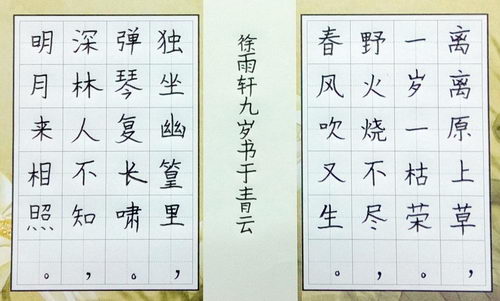 离离原上草，
一岁一枯荣。
野火烧不尽，
春风吹又生。
徐雨轩九岁书于青云
独坐幽篁里，
弹琴复长啸。
深林人不知，
明月来相照。